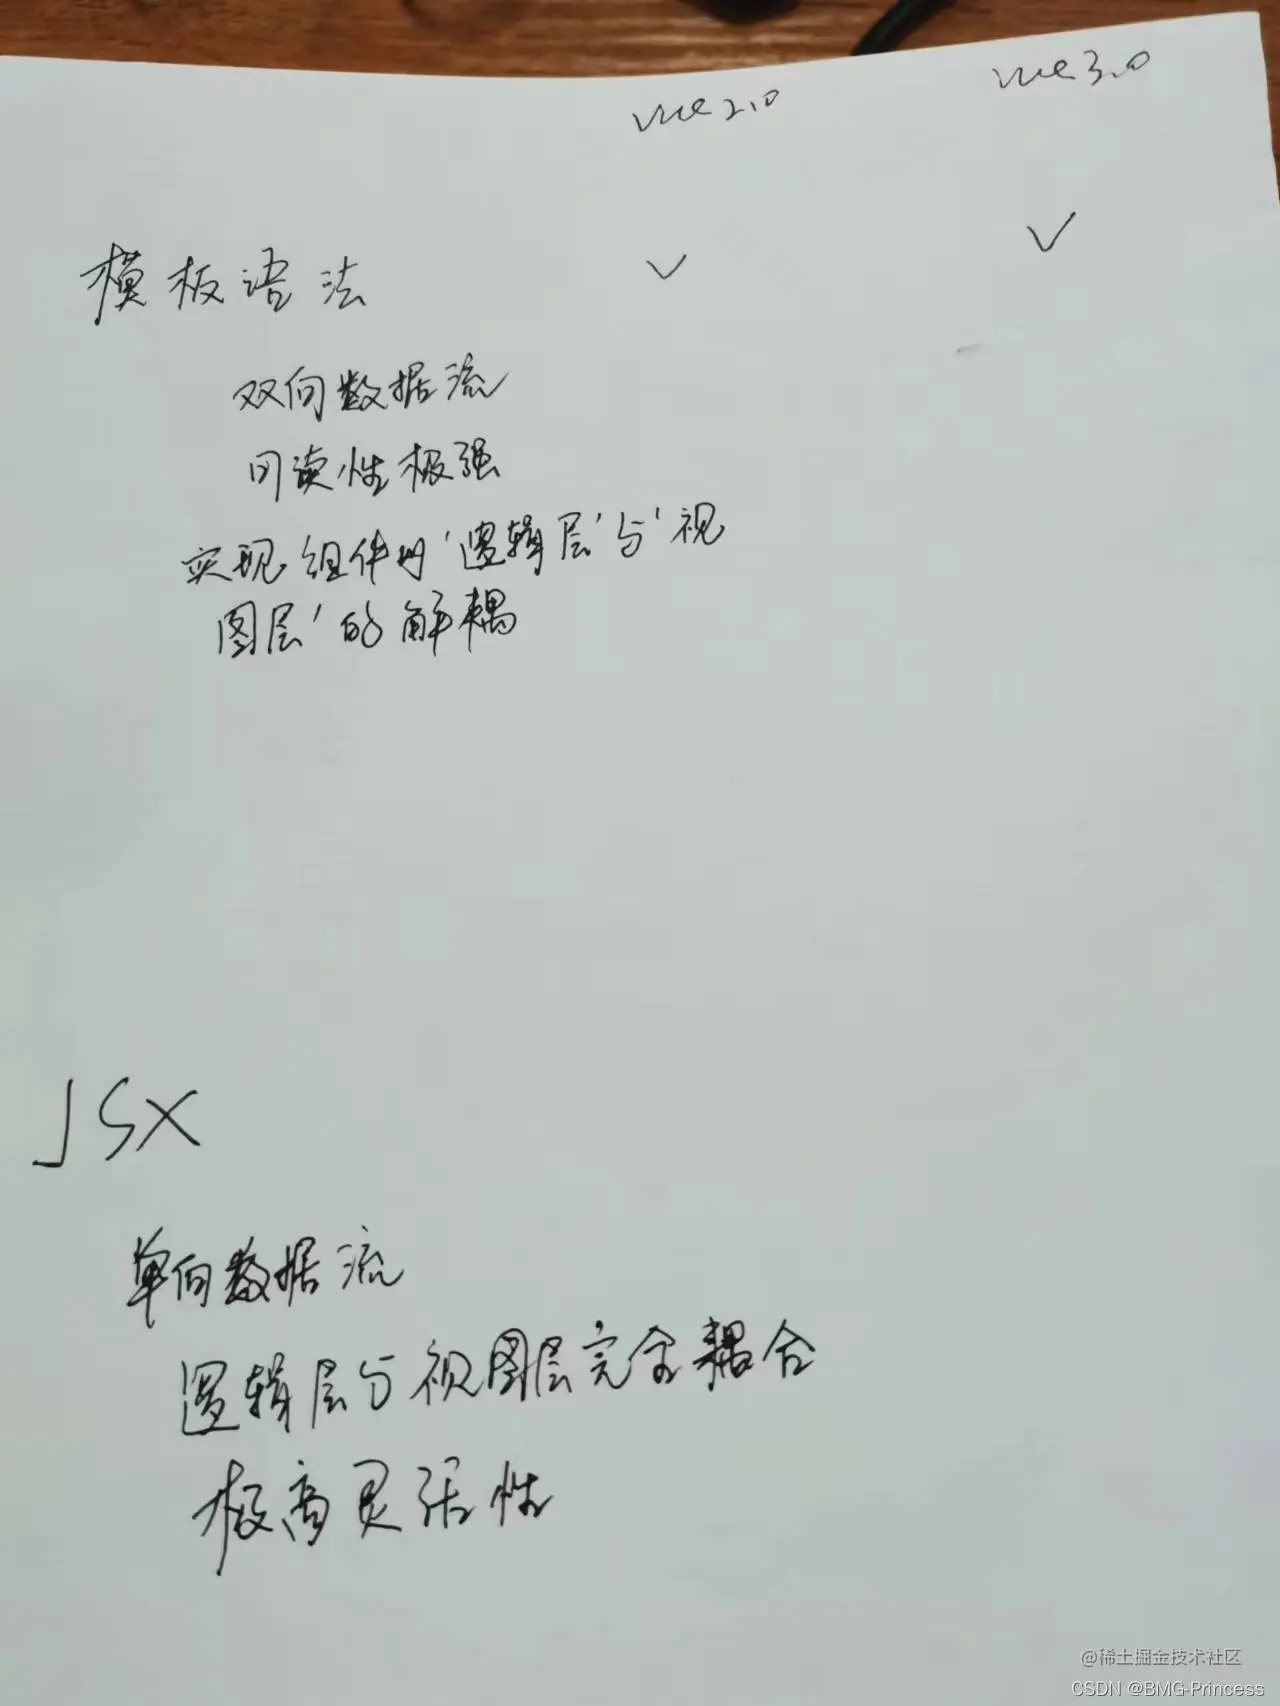 vue2.0 vue3.0
模板语法 ✓ ✓
双向数据流
可读性极强
实现组件的'逻辑层'与'视
图层'的解耦
JSX
单向数据流
逻辑层与视图层完全耦合
极高灵活性
@稀土掘金技术社区
CSDN @BMG-Princess